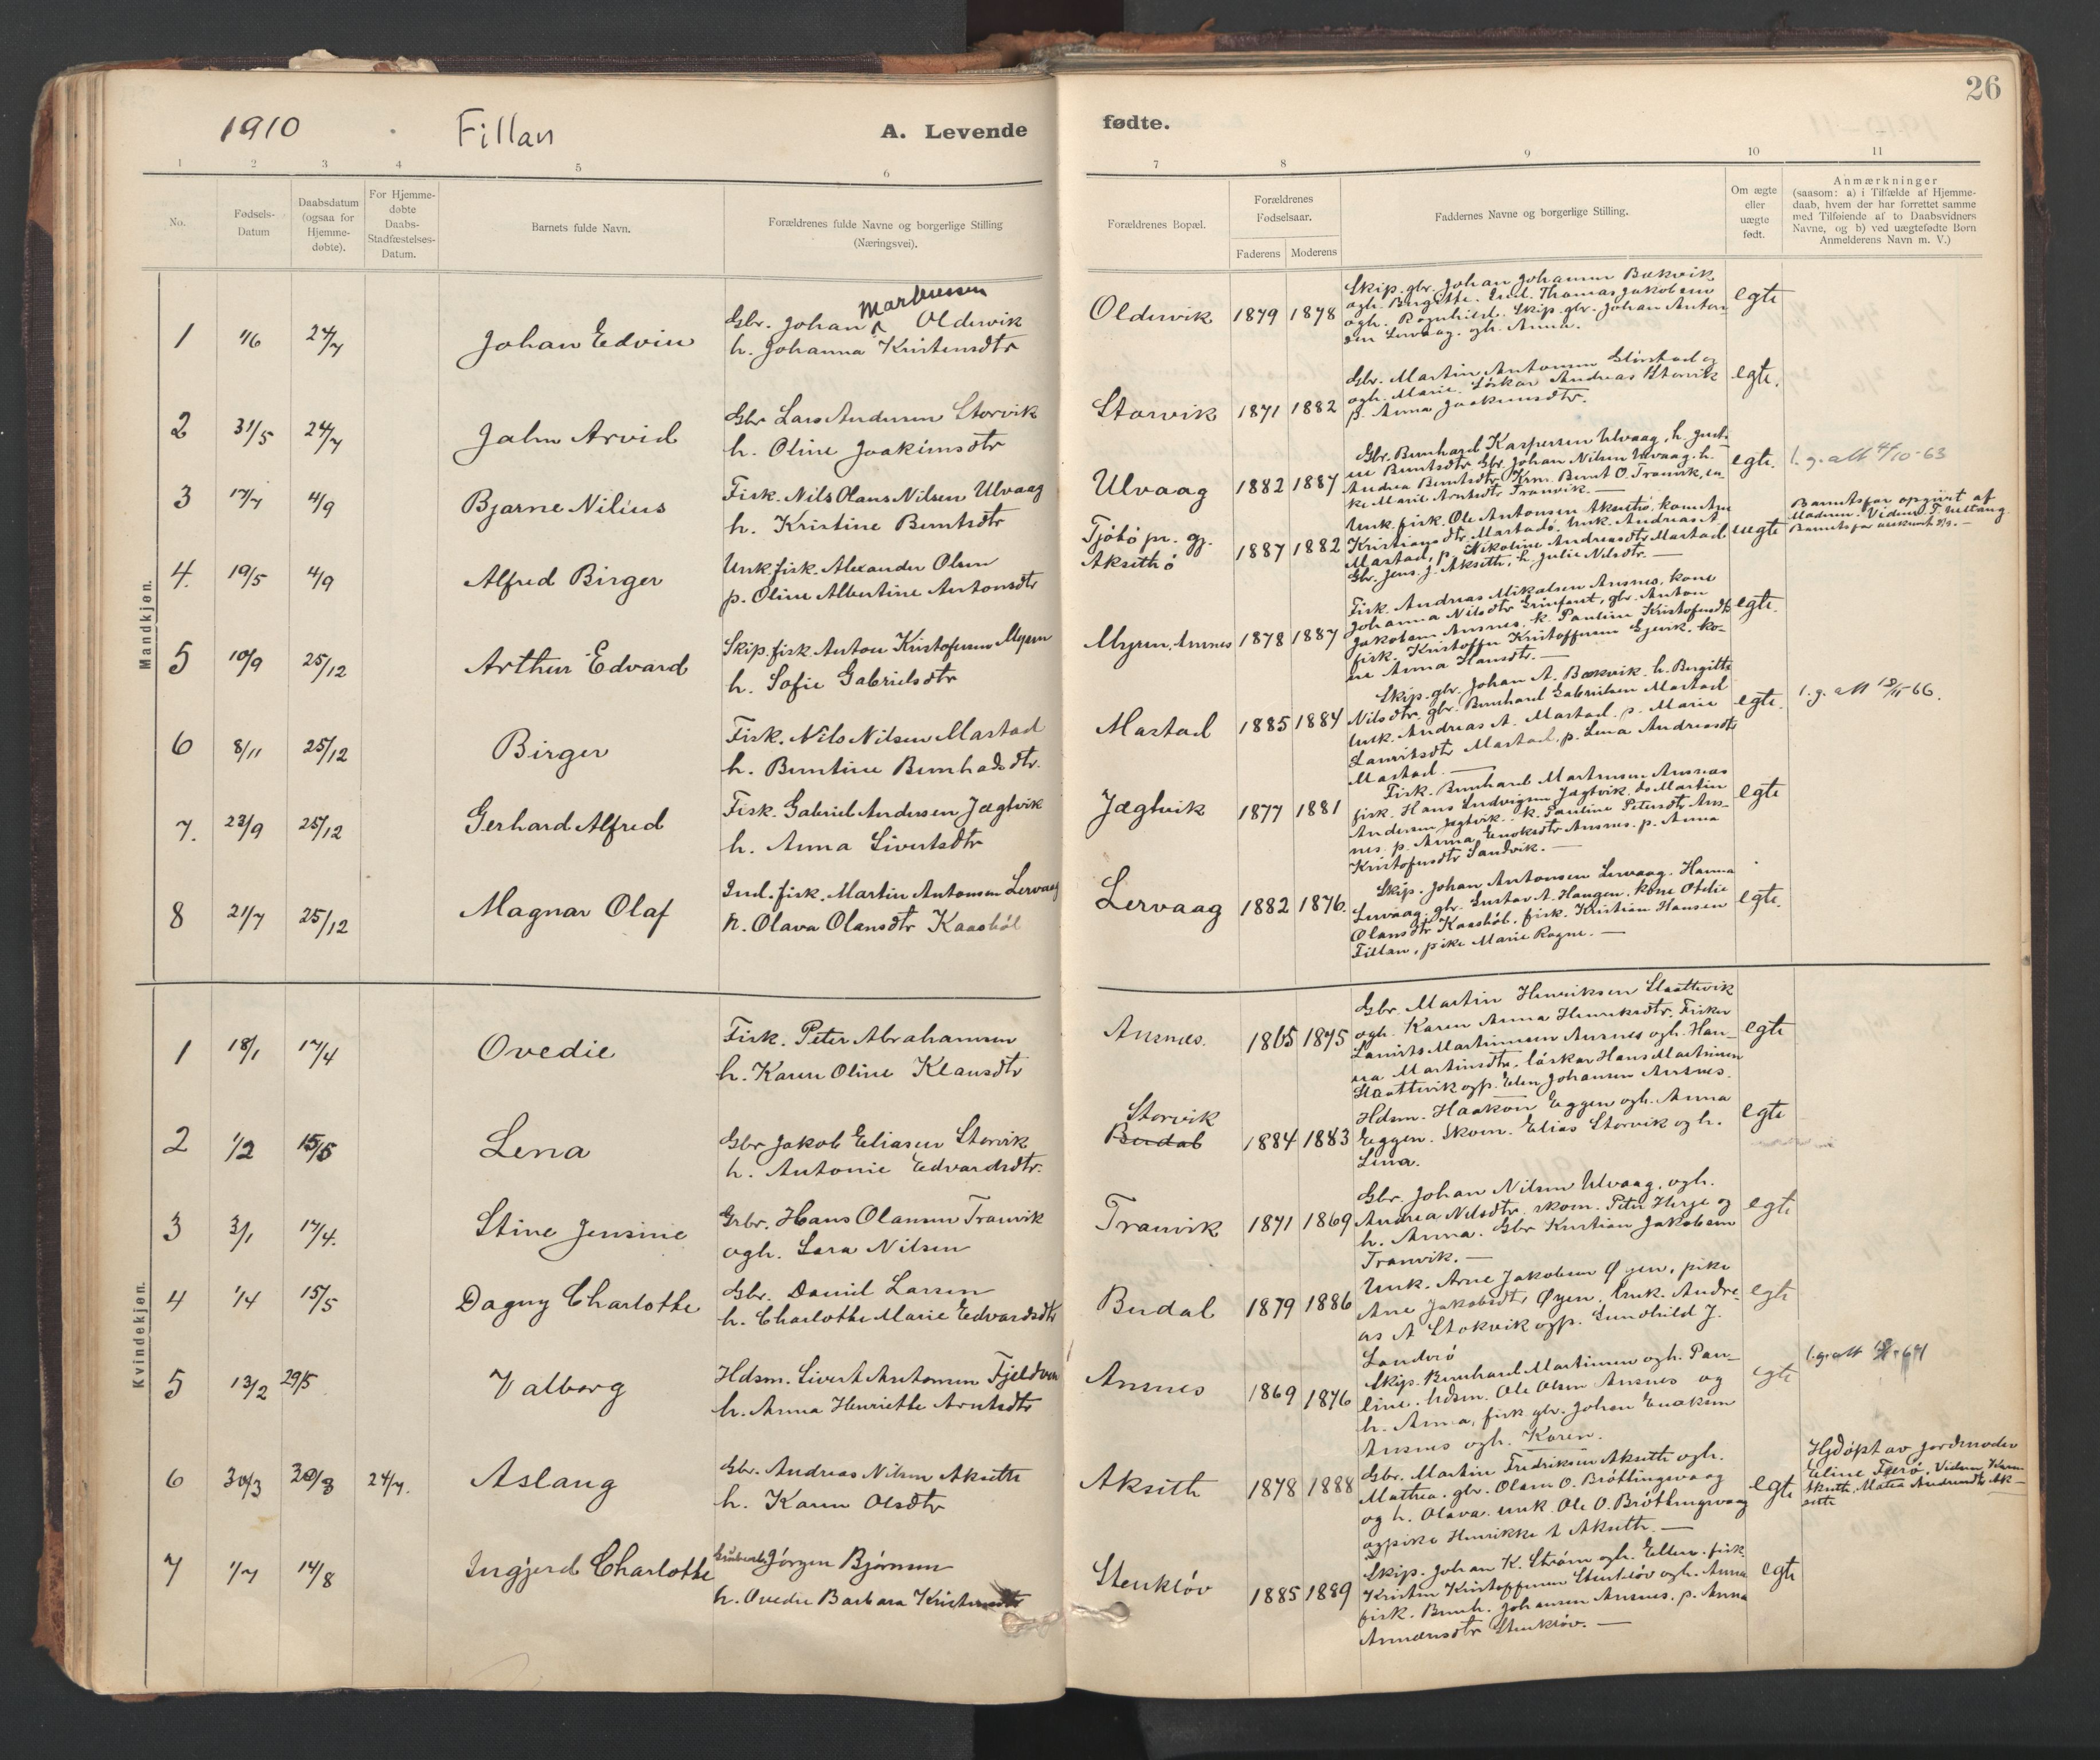 26
1910 Fillan A. Levende fødte.
1 2 3 4 5 6 7 8 9 10 11
No.
Fødsels-
Datum
Daabsdatum
(ogsaa for
Hjemme-
døbte).
For Hjemme-
døbte
Daabs-
Stadfæstelses-
Datum.
Barnets fulde Navn.
Forældrenes fulde Navne og borgerlige Stilling
(Næringsvei).
Forældrenes Bopæl.
Forældrenes
Fødselsaar.
Faderens Moderens
Faddernes Navne og borgerlige Stilling.
Om ægte
eller
uægte
født.
Anmærkninger
(saasom: a) i Tilfælde af Hjemme-
daab, hvem der har forrettet samme
med Tilføiende af to Daabsvidners
Navne, og b) ved uægtefødte Børn
Anmelderens Navn m. V.)
Mandkjøn.
1 1/6 24/7 Johan Edvin
Markussen
Gbr. Johan Oldervik
h. Johanna Kristensdtr
Oldervik 1879 1878
Skip. gbr. Johan Johansen Bækvik
ogh. Birgitte. Ind. Thomas Jakobsen
ogh. Ragnhild. Skip. gbr. Johan Anton-
sen Lervaag. ogh. Anna.
egte
2 31/5 24/7 Jalm Arvid
Gbr Lars Andersen Storvik
h. Oline Joakimsdtr
Storvik 1871 1882
Gbr. Martin Antonsen Glørstad og
ogh. Marie. Løskar Andreas Storvik
p. Anna Joakimsdtr.
egte.
3 17/7 4/9 Bjarne Nilius
Fisk. Nils Olaus Nilsen Ulvaag
h. Kristine Berntsdtr
Ulvaag 1882 1887
Gbr. Bernhard Kaspersen Ulvaag, h. Just-
ine Berntsdtr Gbr. Johan Nilsen Ulvaag. h.
Andrea Berntsdtr. Krm. Bernt O. Tranvik, en-
ke Marie Arntsdtr Tranvik. —
egte. l. g. att 4/10-63
4. 19/5 4/9 Alfred Birger
Unk. fisk. Alexander Olsen
p. Oline Albertine Antonsdtr
Tjötö pr. gj.
Aksethö 1887 1882
Unk. fisk. Ole Antonsen Aksethö, kone Ane
Kristiansdtr Mastadö. Unk. Andreas A
Mastad, p. Nikoline Andreasdtr Mastad
Gbr. Jens. J. Akseth, h. Julie Nilsdtr. —
uegte
Barnets far opgivt af
Barnetsfar
5 10/9 25/12 Arthur Edvard
Skip. fisk. Anton Kristofersen Myren
h. Sofie Gabrielsdtr
Myren. Ansnes 1878 1887
Fisk. Andreas Mikalsen Ansnes. kone
Johanna Nilsdtr Grinfant, gbr. Anton
Jakobsen Ansnes. k. Pauline Kristofersdtr
fisk. Kristoffer Kristoffersen Gjevik. ko-
ne Anna Hansdtr. —
egte.
6 8/11 25/12 Birger
Fisk. Nils Nilsen Mastad
h. Berntine Bernhadsdtr.
Mastad 1885 1884
Skip. gbr. Johan A. Bækvik. h. Birgitte
Nilsdtr. gbr. Bernhard Gabrielsen Mastad
Unk. Andreas A. Mastad. p. Marie
Lauritsdtr Mastad, p. Lena Andreasdtr
Mastad. —
egte. l. g. att 18/11 66.
7. 23/9 25/12 Gerhard Alfred
Fisk. Gabriel Andersen Jægtvik
h. Anna Sivertsdtr
Jægtvik 1877 1881
Fisk. Bernhard Martinsen Ansnes
fisk. Hans Ludvigsen Jægtvik. do Martin
Andersen Jægtvik. k. Pauline Petersdtr Ans-
nes. p. Anna Enoksdtr Ansnes. p. Anna
Kristofersdtr Sandvik. —
egte
8 21/7 25/12 Magnar Olaf
Ind. fisk. Martin Antonsen Lervaag
h. Olava Olausdtr Kaasböl
Lervaag 1882 1876.
Skip. Johan Antonsen Lervaag. Hanna
Lervaag. gbr. Gustav A. Haugen. kone Otelie
Olausdtr Kaasböl. fisk. Kristian Hansen
Fillan, pike Marie Rogne. —
egte.
Kvindekjøn.
1 18/1 17/4 Ovedie
Fisk. Peter Abrahamsen
h. Karen Oline Klausdtr
Ansnes. 1865 1875
Gbr. Martin Henriksen Slaattevik
ogh. Karen Anna Henriksdtr. Fisker
Laurits Martinusen Ansnes ogh. Han-
na Martinsdtr, løskar Hans Martinsen
Slaattevik ogp. Elen Johansen Ansnes.
egte
2 1/2 15/5 Lena
Gbr Jakob Eliasen Storvik
h. Antonie Edvardsdtr.
Storvik
Berdal 1884 1883
Hdsm. Haakon Eggen ogh. Anna
Eggen. Skom. Elias Storvik og h.
Lina.
egte
3 3/1 17/4. Stine Jensine
Gbr. Hans Olausen Tranvik
ogh. Sara Nilsen
Tranvik 1871 1869
Gbr. Johan Nilsen Ulvaag, ogh.
Andrea Nilsdtr. skom. Peter Herje og
h. Anna. Gbr Kristian Jakobsen
Tranvik. —
egte
4 1/4 15/5 Dagny Charlotte
Gbr. Daniel Larsen
h. Charlotte Marie Edvardsdtr
Berdal 1879 1886
Unk. Arne Jakobsen Øyen, pike
Ane Jakobsdtr Øyen. Unk. Andre-
as A Stokvik ogp. Gunhild J.
Sandvö
egte
5 13/2 29/5 Valborg
Hdsm. Sivert Antonsen Fjeldvær
h. Anna Henriette Arntsdtr
Ansnes 1869 1876
Skip. Bernhard Martinsen ogh. Pau-
line. hdsm. Ole Olsen Ansnes og
h. Anna, fisk. gbr. Johan Enoksen
Ansnes ogh. Karen.
egte
6 30/3 30/3 24/7. Aslaug
Gbr. Andreas Nilsen Akseth
h. Karen Olsdtr
Akseth 1878 1888
Gbr. Martin Fredriksen Akseth ogh.
Mathea. gbr. Olaus O. Bröttingsvaag
og h. Olava. unk. Ole O. Bröttingsvaag
ogpike Henrikke A Akseth. —
egte
Hjdöpt av jordmoder
Eline
7 1/7 14/8 Ingjerd Charlotte
Jörgen Björnsen
h. Ovedie Barbara Kristensdtr
Stenklöv 1885 1889
Skip. Johan K. Ström ogh. Ellen. fisk.
Kristen Kristoffersen Stenklöv ogh. Anna
fisk. Bernh. Johansen Ansnes. p. Anna
Stenklöv. —
egte